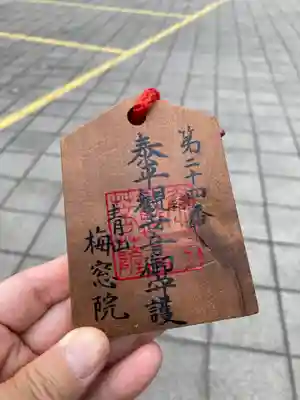 第二十四番
泰平觀世音御守護
青山
梅窓院